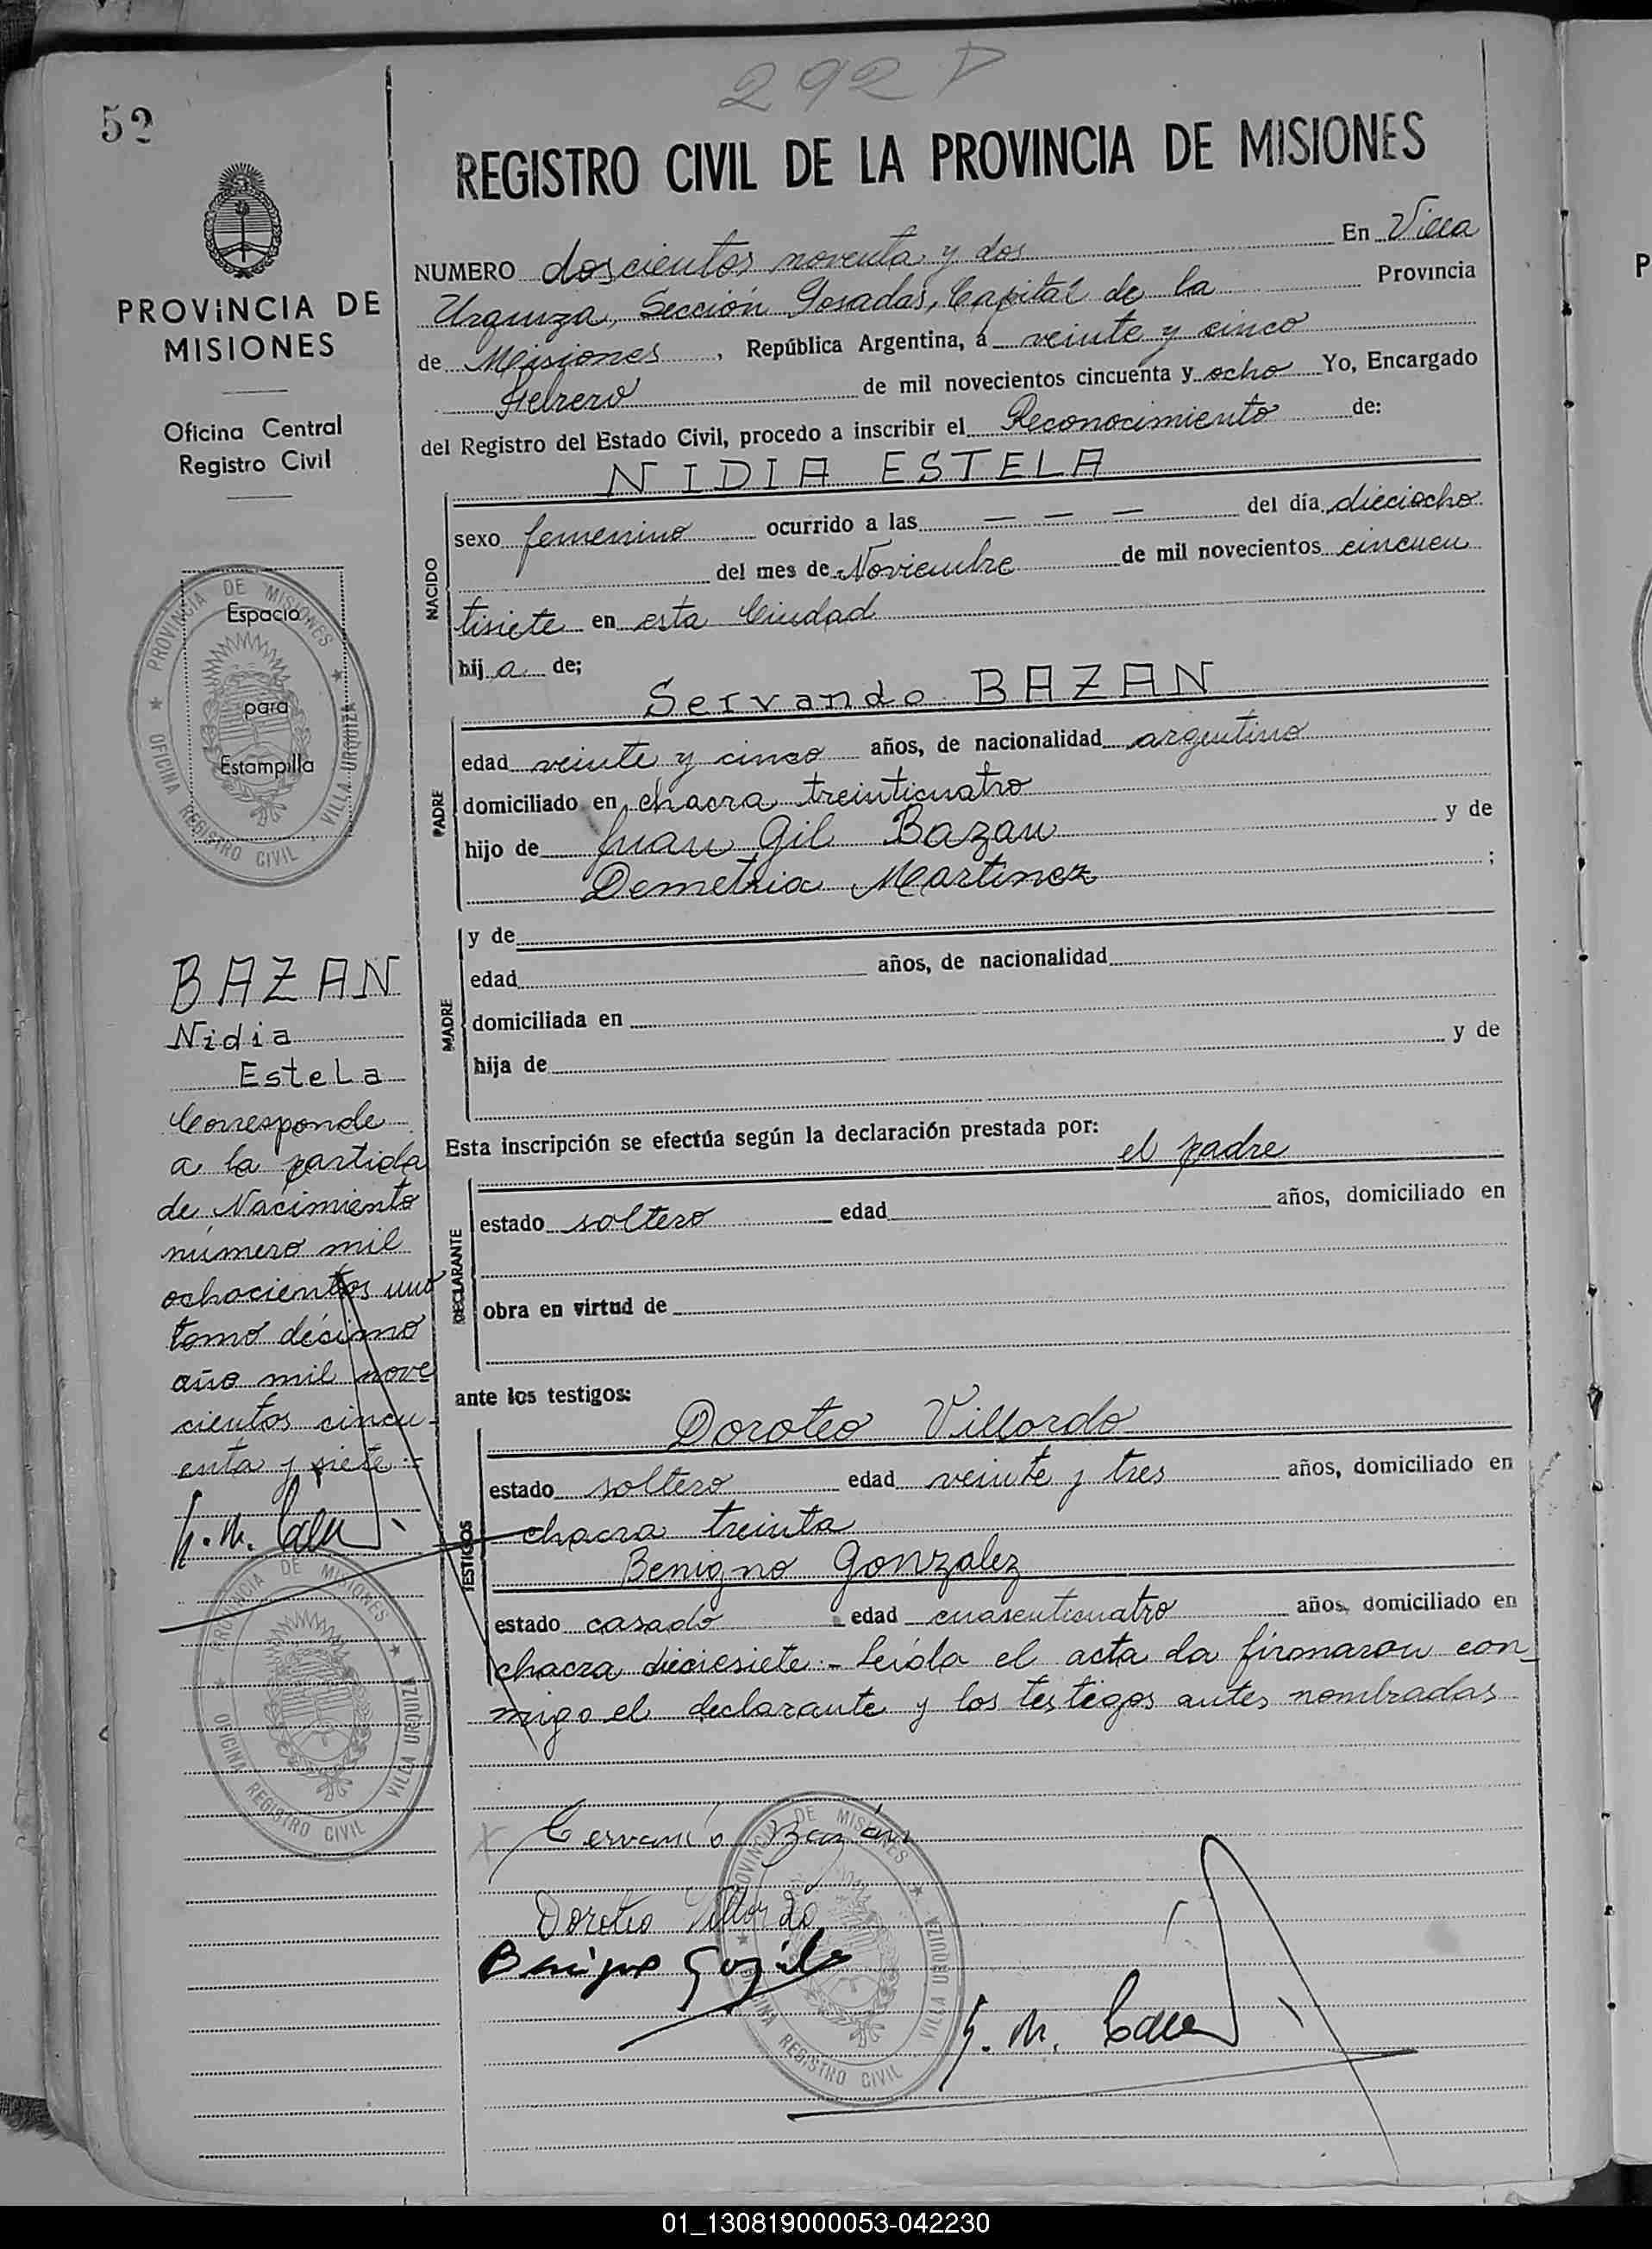 292 D
52
REGISTRO CIVIL DE LA PROVINCIA DE MISIONES
NUMERO doscientos noventa y dos En Villa
Urquiza, Sección Posadas, Capital de la Provincia
de Misiones, República Argentina, á veinte y cinco
Febrero de mil novecientos cincuenta y ocho Yo, Encargado
del Registro del Estado Civil, procedo a inscribir el Reconocimiento de:
NIDIA ESTELA
NACIDO
sexo femenino ocurrido a las — — — del día dieciocho
del mes de Noviembre de mil novecientos cincuen
tisiete en esta Ciudad
hij a de;
Servando BAZAN
PADRE
edad veinte y cinco años, de nacionalidad argentino
domiciliado en chacra treinticuatro
hijo de Juan Gil Bazan y de
Demetria Martinez ;
MADRE
y de
edad años, de nacionalidad
domiciliada en
hija de y de
Esta inscripción se efectúa según la declaración prestada por:
el padre
DECLARANTE
estado soltero edad años, domiciliado en
obra en virtud de
ante los testigos:
Doroteo Villordo
TESTIGOS
estado soltero edad veinte y tres años, domiciliado en
chacra treinta
Benigno Gonzalez
estado casado edad cuarenticuatro años, domiciliado en
chacra dieciesiete.- Leída el acta la firmaron con-
migo el declarante y los testigos antes nombradas
Bazán
Doroteo Villordo
PROVINCIA DE MISIONES
OFICINA REGISTRO CIVIL VILLA URQUIZA
PROVINCIA DE
MISIONES
Oficina Central
Registro Civil
Espacio
para
Estampilla
PROVINCIA DE MISIONES
OFICINA REGISTRO CIVIL VILLA URQUIZA
BAZAN
Nidia
Estela
Corresponde
a la partida
de Nacimiento
número mil
ochocientos uno
tomo décimo
año mil nove
cientos cincu-
enta y siete.-
PROVINCIA DE MISIONES
OFICINA REGISTRO CIVIL VILLA URQUIZA
P
01_130819000053-042230